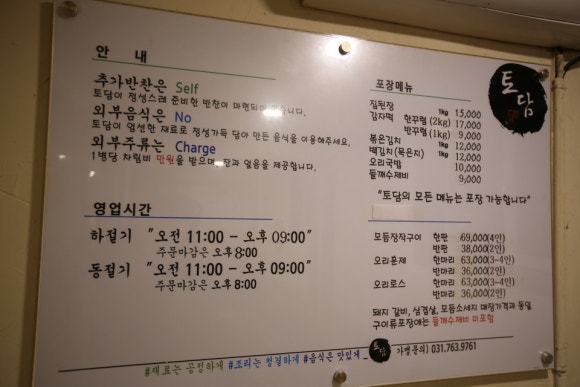 안 내
추가반찬은 Self
토담이 정성스레 준비한 반찬이 마련되어 있습니다.
외부음식은 No
토담이 엄선한 재료로 정성가득 담아 만든 음식을 이용해주세요.
외부주류는 Charge
1병당 차림비 만원을 받으며 잔과 얼음을 제공합니다.
영업시간
하절기 "오전 11:00 - 오후 09:00"
주문마감은 오후 8:00
동절기 "오전 11:00 - 오후 09:00"
주문마감은 오후 8:00
토담
포장메뉴
집된장 1kg 15,000
감자떡 한꾸렘 (2kg) 17,000
반꾸렘 (1kg) 9,000
볶은김치 1kg 12,000
백김치(묵은지) 1kg 12,000
오리국밥 10,000
들깨수제비 9,000
"토담의 모든 메뉴는 포장 가능합니다"
모듬장작구이 한판 69,000(4인)
반판 38,000(2인)
오리훈제 한마리 63,000(3-4인)
반마리 36,000(2인)
오리로스 한마리 63,000(3-4인)
반마리 36,000(2인)
돼지 갈비, 삼겹살, 모듬소세지 매장가격과 동일
구이류포장에는 들깨수제비 미포함
#재료는 공정하게 #조리는 청결하게 #음식은 맛있게 _ 토담 가맹문의) 031.763.9761